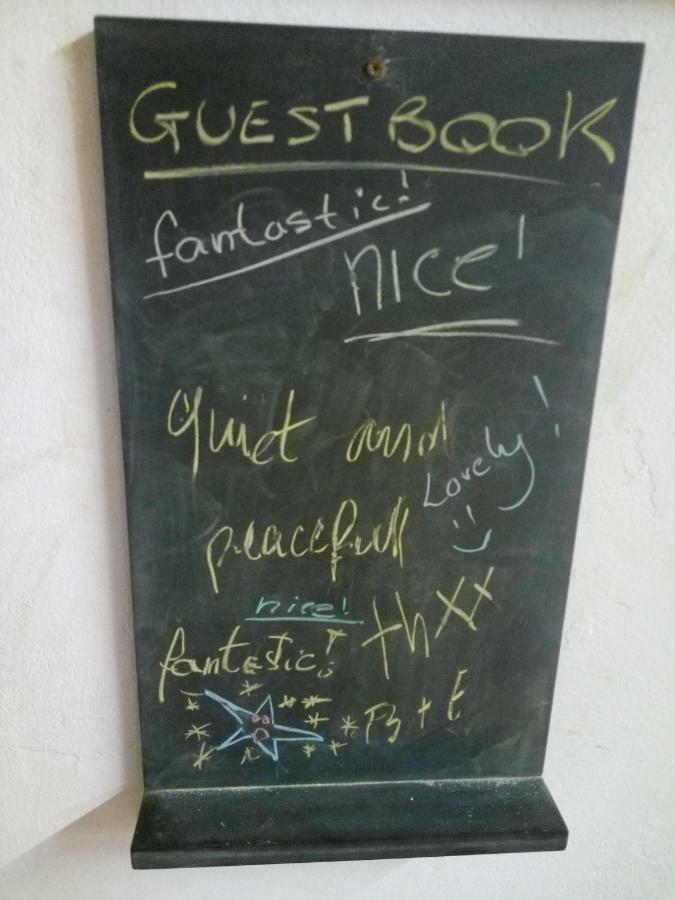 GUEST BOOK
fantastic!
NICE!
quiet and
Lovely!
peacefull
nice!
thxx
fantestic!
B + E